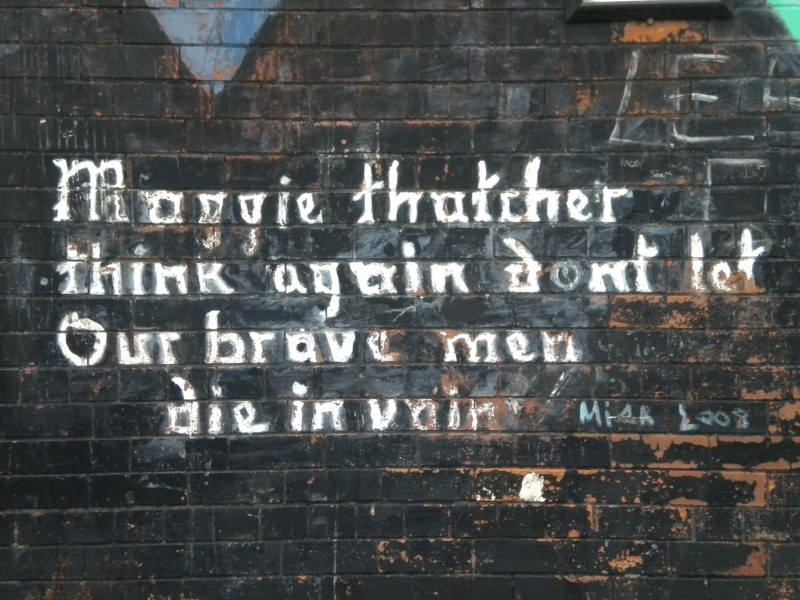 LES
Maggie thatcher
think again dont let
Our brave men
die in vain
2008